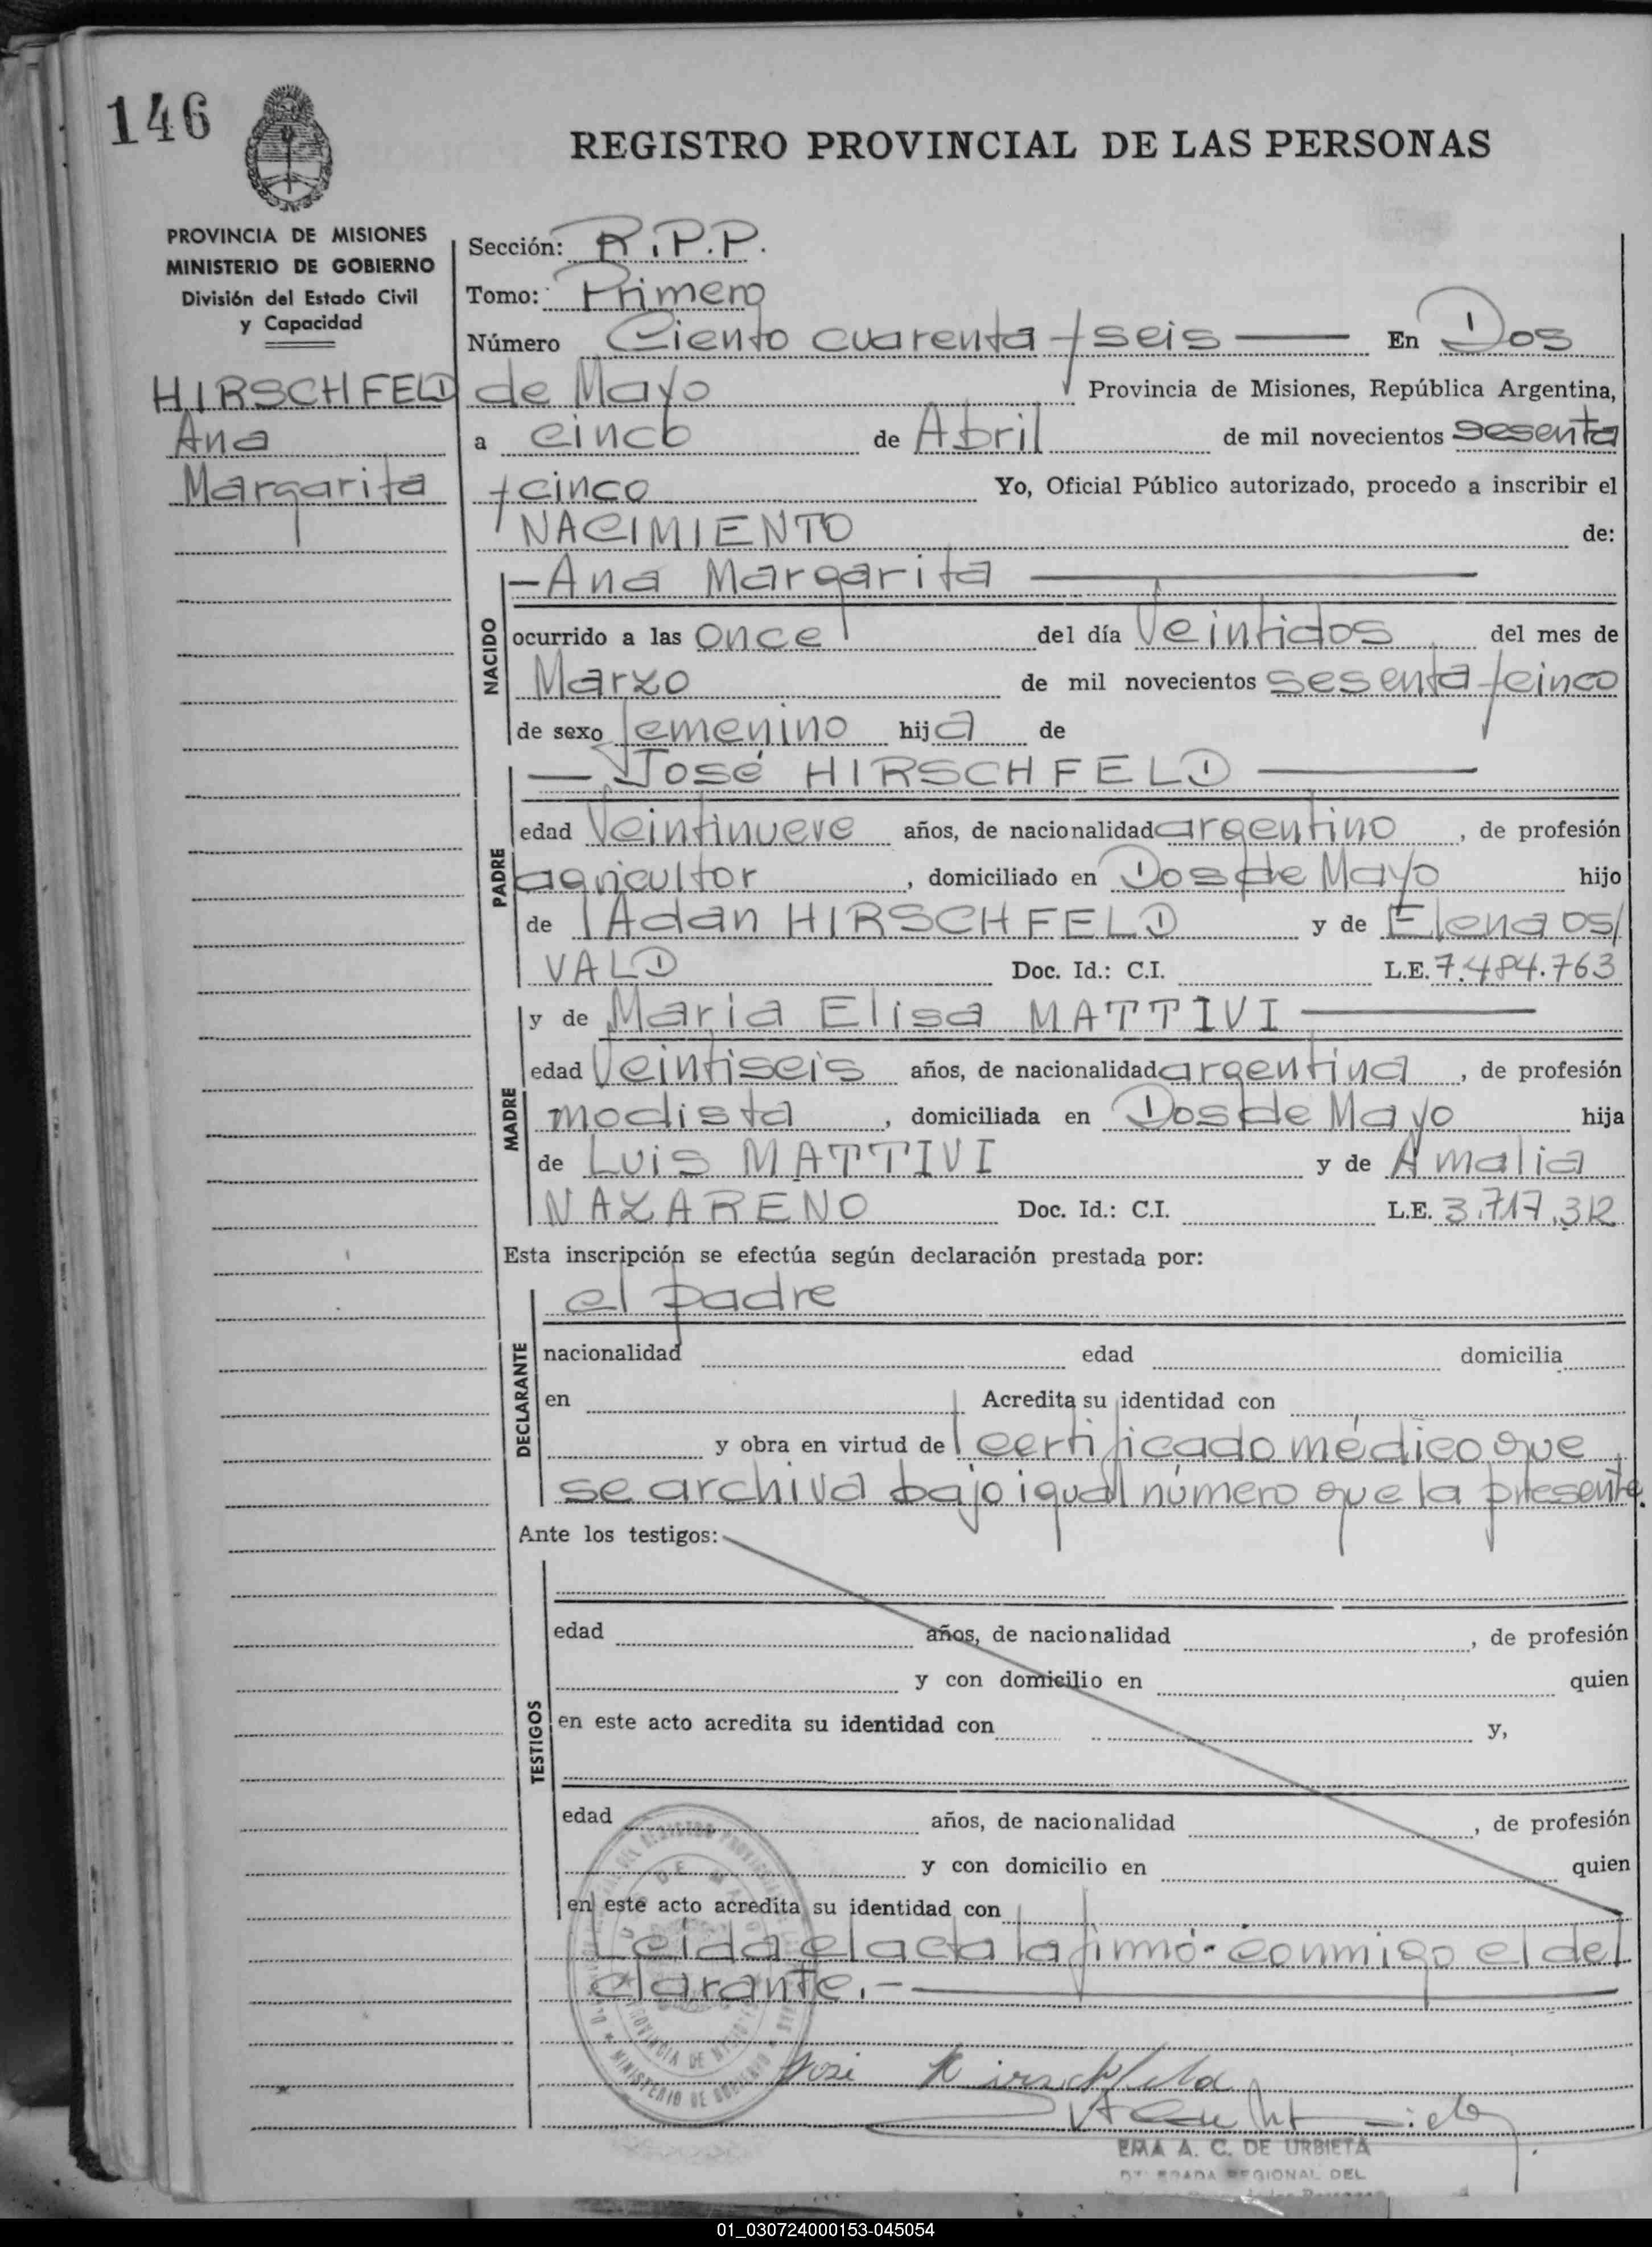 146
REGISTRO PROVINCIAL DE LAS PERSONAS
PROVINCIA DE MISIONES
MINISTERIO DE GOBIERNO
División del Estado Civil
y Capacidad
HIRSCHFELD
Ana
Margarita
Sección: R.P.P.
Tomo: Primero
Número Ciento cuarenta y seis En Dos
de Mayo Provincia de Misiones, República Argentina,
a cinco de Abril de mil novecientos sesenta
y cinco Yo, Oficial Público autorizado, procedo a inscribir el
NACIMIENTO de:
NACIDO
- Ana Margarita
ocurrido a las once del día Veintidos del mes de
Marzo de mil novecientos sesenta y cinco
de sexo femenino hija de
PADRE
José HIRSCHFELD
edad Veintinueve años, de nacionalidad argentino, de profesión
agricultor, domiciliado en Dos de Mayo hijo
de Adan HIRSCHFELD y de Elena OS/
VALD Doc. Id.: C.I. L.E. 7.484.763
MADRE
y de Maria Elisa MATTIVI
edad Veintiseis años, de nacionalidad argentina, de profesión
modista, domiciliada en Dos de Mayo hija
de Luis MATTIVI y de Amalia
NAZARENO Doc. Id.: C.I. L.E. 3.717.312
Esta inscripción se efectúa según declaración prestada por:
DECLARANTE
el padre
nacionalidad edad domicilia
en Acredita su identidad con
y obra en virtud de certificado médico que
se archiva bajo igual número que la presente.
Ante los testigos:
TESTIGOS
edad años, de nacionalidad , de profesión
y con domicilio en quien
en este acto acredita su identidad con y,
edad años, de nacionalidad , de profesión
y con domicilio en quien
en este acto acredita su identidad con
Leída el acta la firmó conmigo el de/
clarante.-
PROVINCIA DE MISIONES
MINISTERIO DE GOBIERNO
José Hirschfeld
EMA A. C. DE URBIETA
REGIONAL DEL
01_030724000153-045054